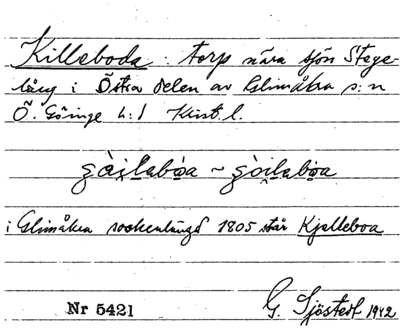 Killeboda : torp nära sjön Stege-
lång i Östra delen av Glimåkra s:n
Ö. Göinge h:d Krist. l.
gòi̯labo̤a ~ gòi̯labo̤a
i Glimåkra sockenlängd 1805 står Kjelleboa
Nr 5421
G. Sjöstedt 1942